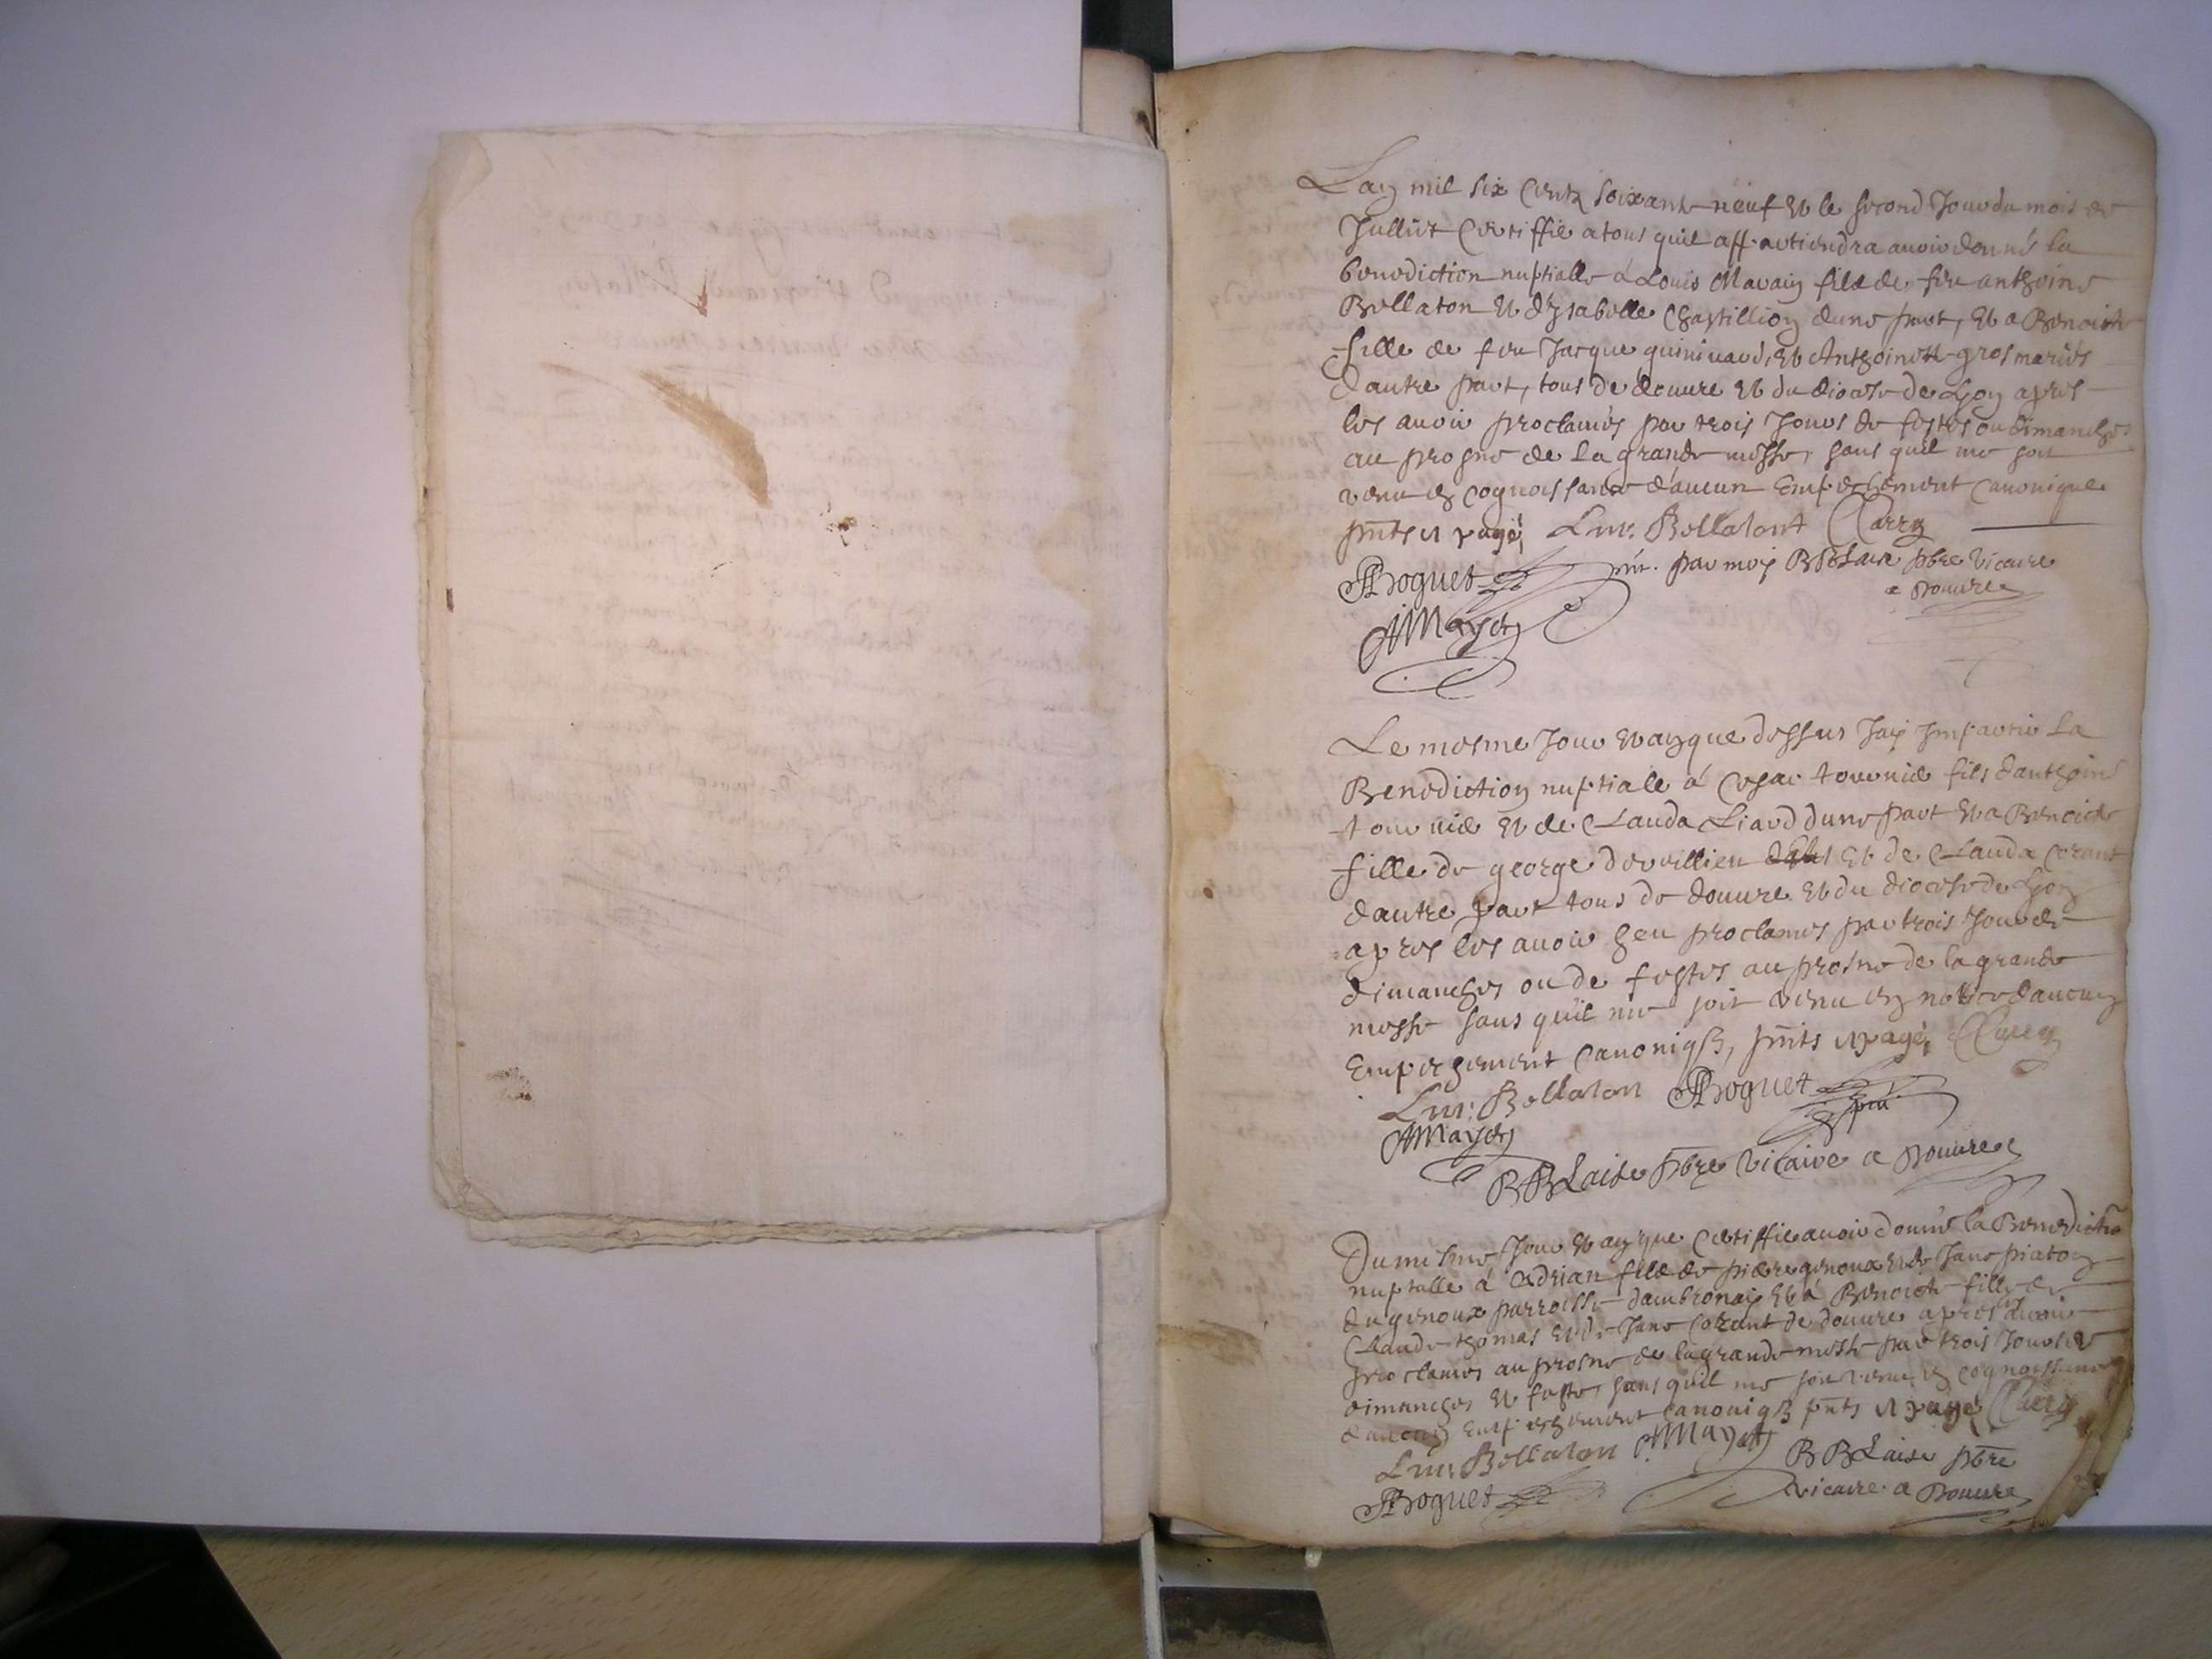 Lan mil six centz soixante neuf et le second Jour du mois de
Julliet Certiffie a tous quil appartiendra avoir donné la
benediction nuptialle á Louis Maray fils de feu anthoine
Bellaton et dysabelle Chastillion dune part, et a Benoiste
fille de feu Jacque et Anthoinette gros mariés
dautre part, tous de douure et du diocese de Lyon apres
les avoir proclamés par trois Jours de festes ou dimanches
au prosne de la grande messe, sans quil me soit
venu en cognoissance d'aucun Empechement canonique
pnts Luc. Bellatont Carry
PBoguet pnt. par moy B Blaise pbre vicaire
a Douure
AMayet
Le mesme Jour et an que dessus Jay Imparti La
Benediction nuptiale á Cesar tournié fils danthoine
tournié et de Clauda Liard dune part et a Benoiste
fille de george et de Clauda Corant
dautre part tous de douure et du diocese de Lyon
apres les avoir heu proclames par trois Jour de
dimanches ou de festes au prosne de la grande
messe sans quil me soit venu en notice daucun
Empechement canoniq, pnts Carry
Luc: Bellaton PBoguet pnt
AMayet
B Blaise pbre vicaire a Douure
Du mesme Jour et an que Certiffie avoir donné la Benediction
nuptalle á Adrian fils de pierre genoux et de Jane piaton
du genoux parroisse dambronay et á Benoiste fille de
Claude thomas et de Jane Corant de douure apres avoir
proclames au prosne de la grande messe par trois Jours de
dimanches et festes, sans quil me soit venu en cognoissance
daucun Empechement canoniq pnts Carry
Luc Bellaton AMayet B Blaise pbre
PBoguet vicaire a Douure